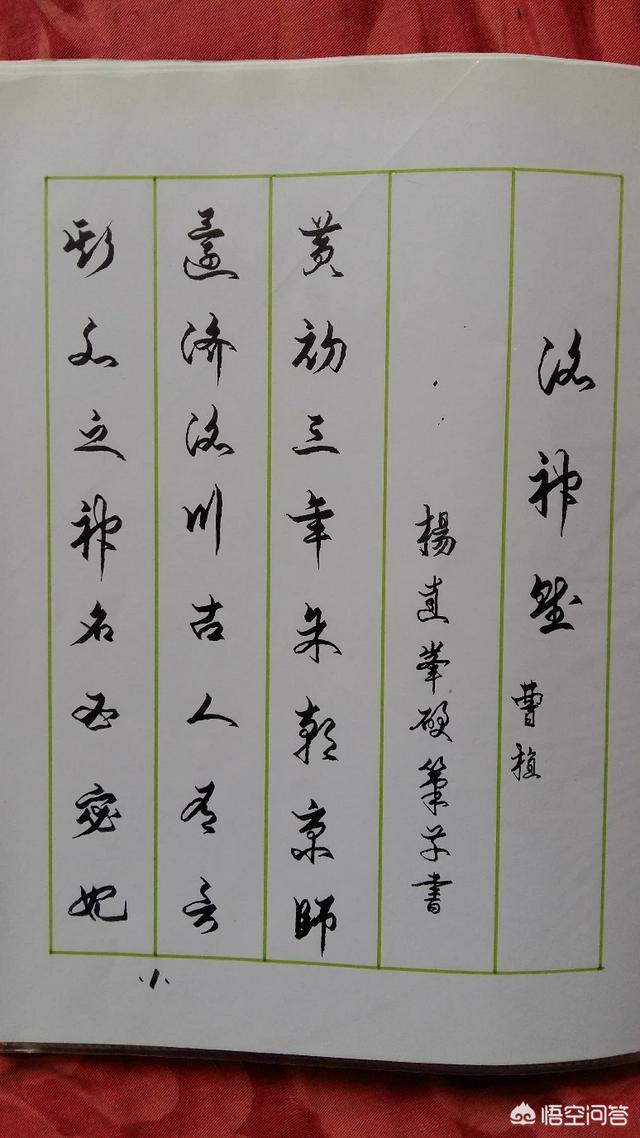 洛神賦 曹植
楊直峯硬筆草書
黄初三年余朝京師
還濟洛川古人有言
斯水之神名曰宓妃
·1·
悟空问答